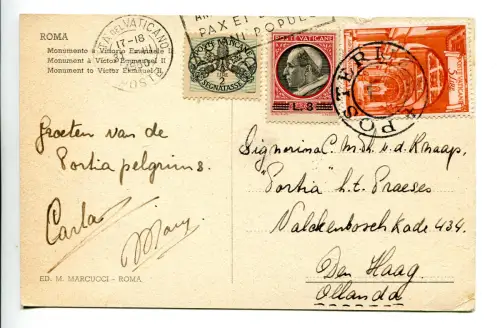 ROMA
Monumento a Vittorio Emanuele II
Monument à Victor Emmanuel II
Monument to Victor Emanuel II
CITTÀ DEL VATICANO
17-18
POSTE
PAX ET
POPUL
POSTE VATICANE
L 3
5 LIRE
POSTERI
Groeten van de
Portia pelgrims.
Carla
Mary.
Signorina C. M. v. d. Knaap,
"Portia" h.t. Praeses
Valckenboschkade 434.
Den Haag.
Ollanda
ED. M. MARCUCCI - ROMA